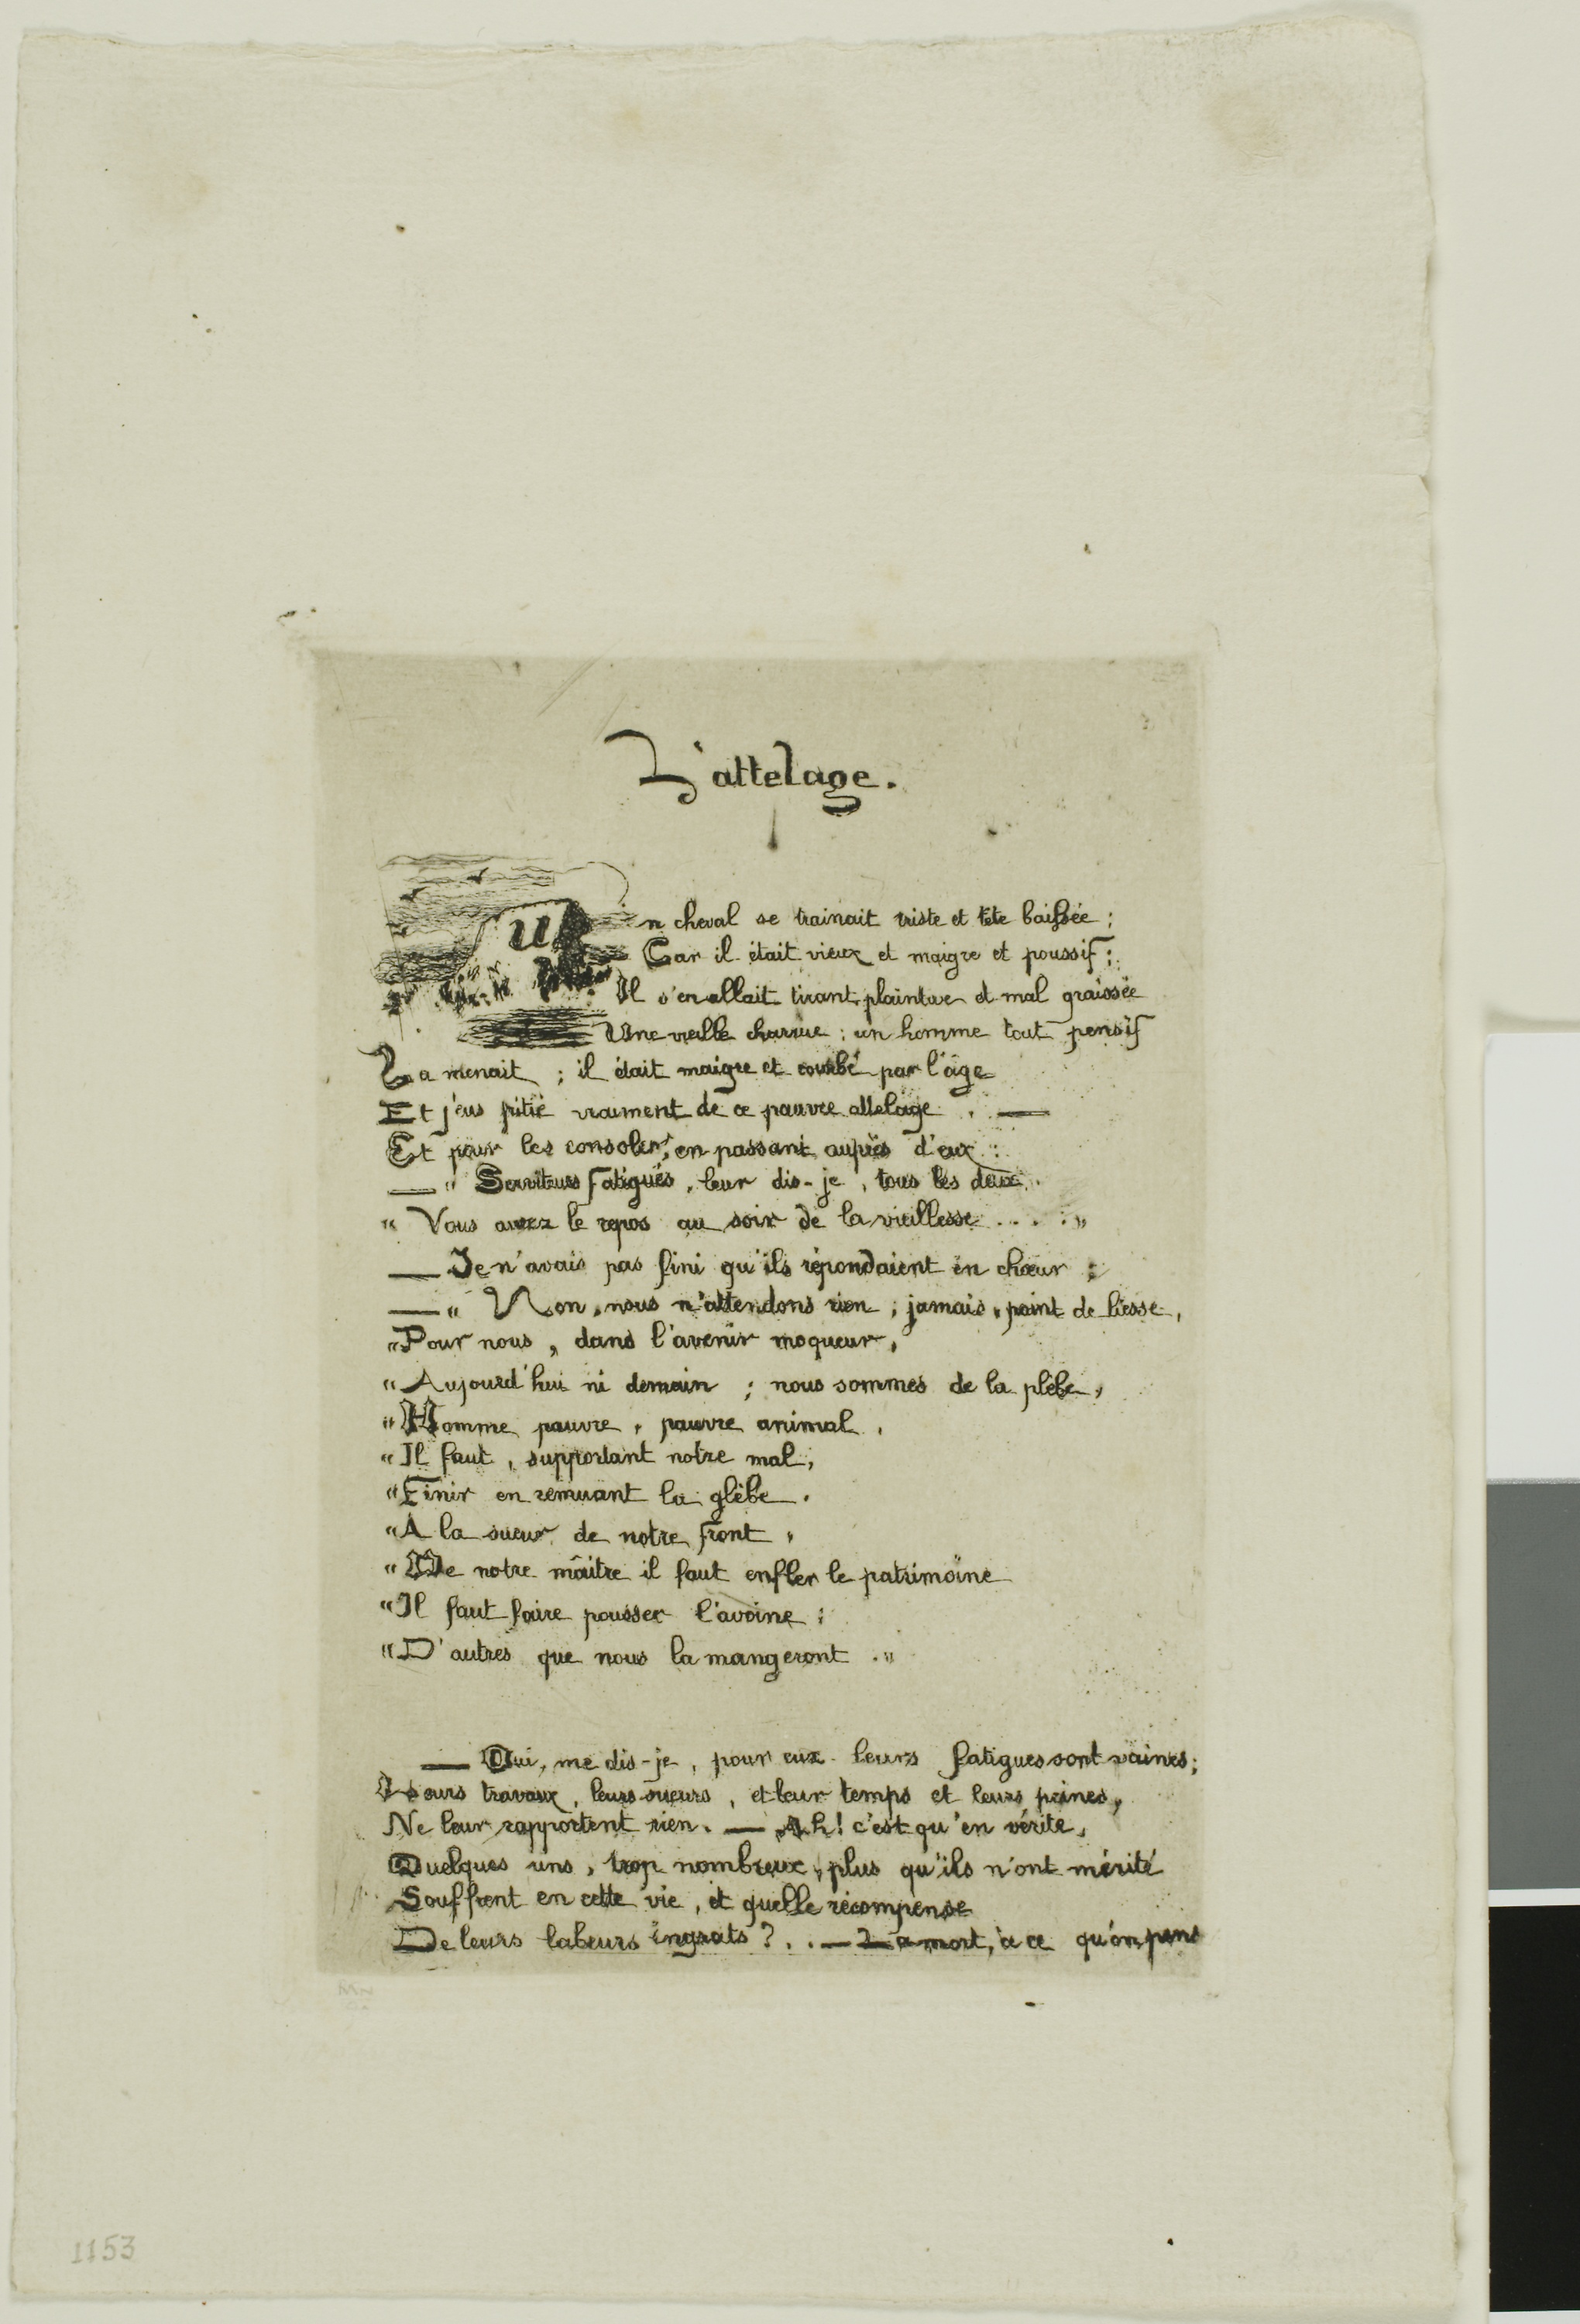 L'attelage.
Un cheval se trainait triste et tête baissée ;
Car il était vieux et maigre et poussif ;
Il s'en allait tirant, plaintive et mal graissée
Une vieille charrue ; un homme tout pensif
La menait ; il était maigre et courbé par l'âge
Et j'eus pitié vraiment de ce pauvre attelage . —
Et pour les consoler, en passant auprès d'eux :
— " Serviteurs fatigués, leur dis-je, tous les deux.
" Vous aurez le repos au soir de la vieillesse . . . . "
— Je n'avais pas fini qu'ils répondaient en chœur :
— " Non, nous n'attendons rien ; jamais, point de liesse,
" Pour nous, dans l'avenir moqueur,
" Aujourd'hui ni demain ; nous sommes de la plèbe,
" Homme pauvre, pauvre animal,
" Il faut, supportant notre mal,
" Finir en remuant la glèbe.
" A la sueur de notre front,
" De notre maître il faut enfler le patrimoine
" Il faut faire pousser l'avoine ;
" D'autres que nous la mangeront ."
— Oui, me dis-je, pour eux leurs fatigues sont vaines ;
Leurs travaux, leurs sueurs, et leur temps et leurs peines,
Ne leur rapportent rien. — Ah! c'est qu'en vérité,
Quelques uns, trop nombreux, plus qu'ils n'ont mérité
Souffrent en cette vie, et quelle récompense
De leurs labeurs ingrats ? . . — La mort, à ce qu'on pens
1153